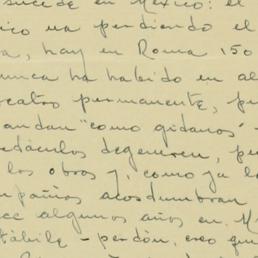 sucede en México: el
ico va perdiendo el
a, hay en Roma 150
nunca ha habido en al
eatro permanente, pu
andan "como gitanos" -
ectáculos degeneren, pe
los obros y, como ya lo
mpañías acostumbran
ce algunos años en M
tábile - perdón, creo que